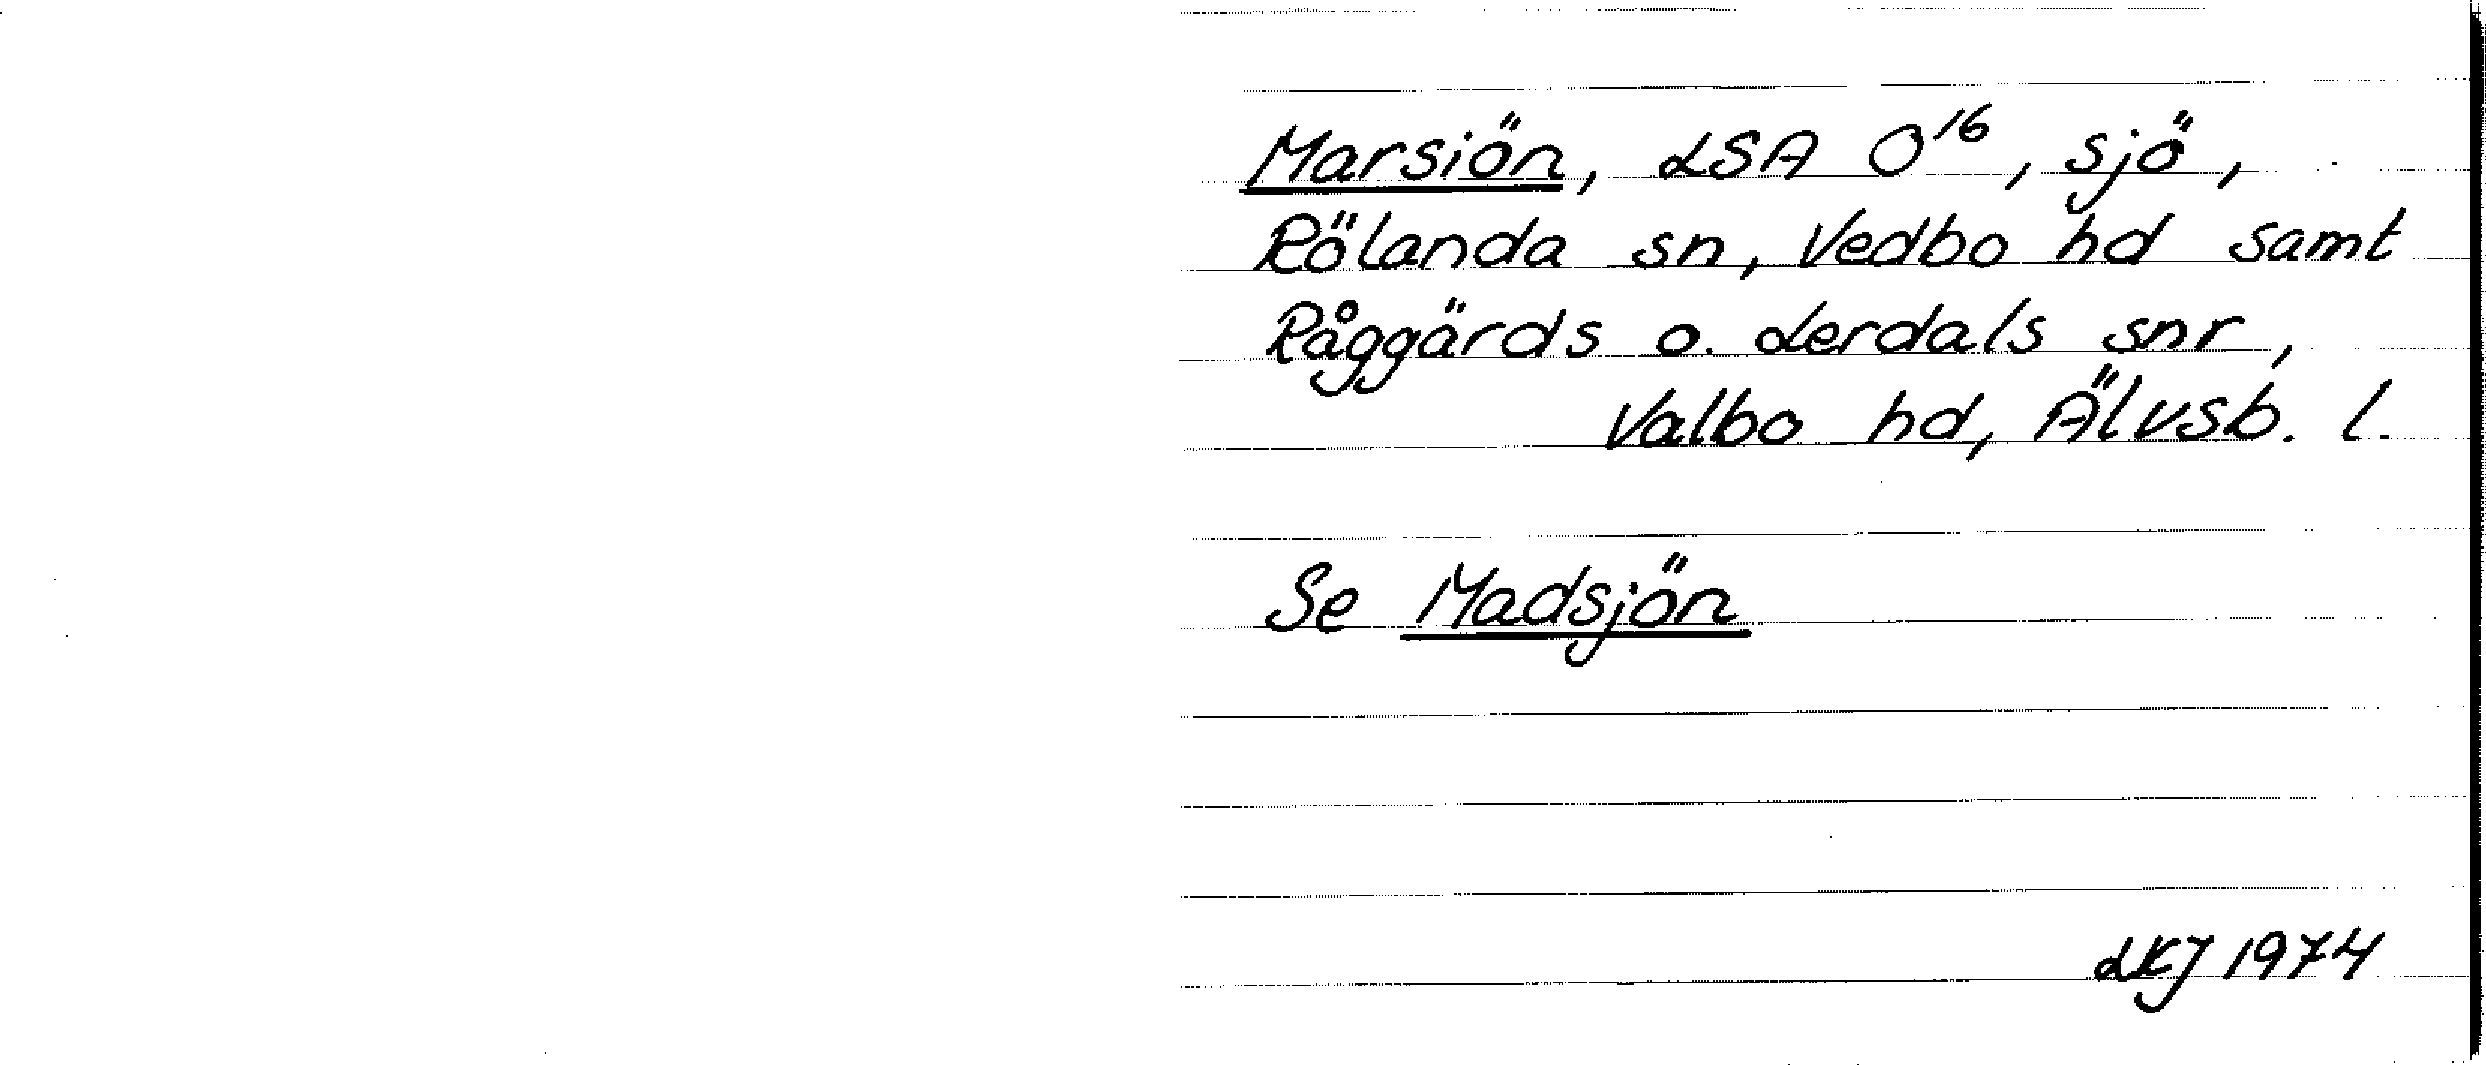 Marsiön, LSA O¹⁶, sjö,
Rölanda sn, Vedbo hd samt
Råggärds o. Lerdals snr,
Valbo hd, Älvsb. l.
Se Madsjön
LKJ 1974